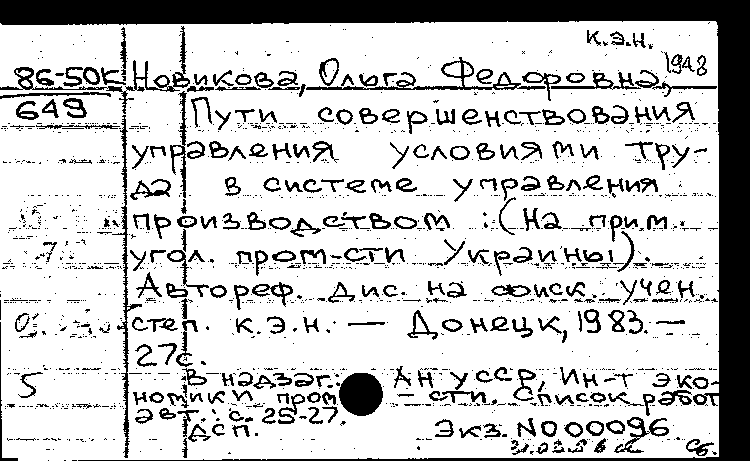 к.э.н.
86-50К Новикова, Ольга Федоровна, 1948
649 Пути совершенствования
управления условиями тру-
да в системе управления
производством : (На прим.
угол. пром-сти Украины).
Автореф. дис. на соиск. учен.
степ. к.э.н. — Донецк, 1983. —
27с.
5 В надзаг.: АН УССР, Ин-т эко-
номики пром-сти. Список работ
авт.: с. 25-27.
ДСП. Экз. N000096
Сб.